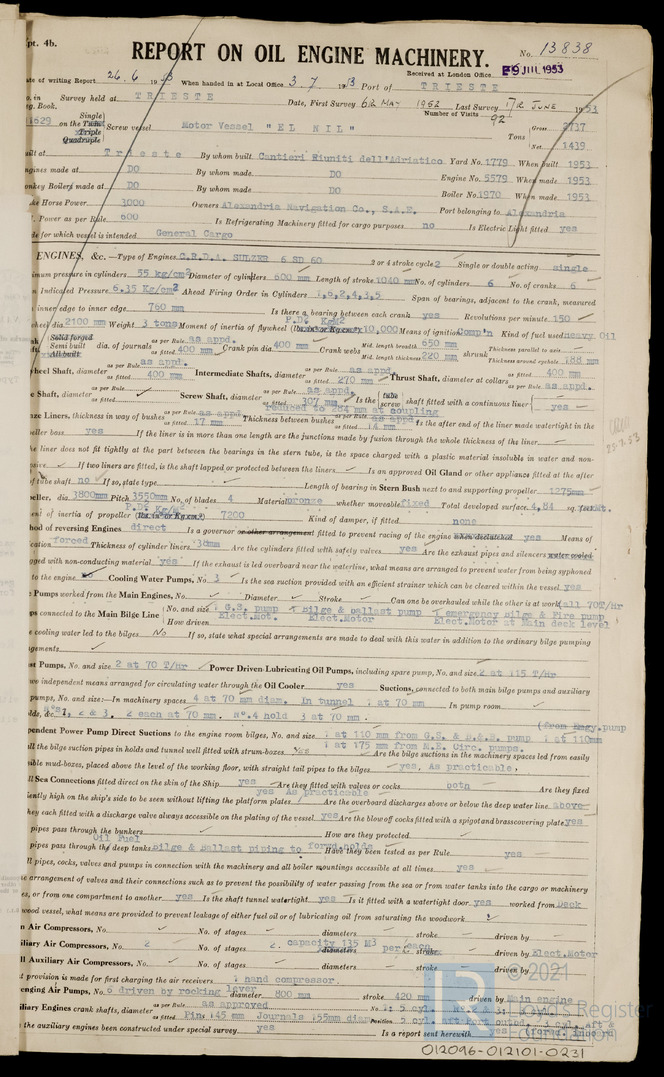 pt. 4b.
REPORT ON OIL ENGINE MACHINERY.
No. 13838
Received at London Office 9 JUL 1953
ate of writing Report 26.6 1953 When handed in at Local Office 3.7.1953 Port of TRIESTE
o. in Survey held at TRIESTE Date, First Survey 6th MAY 1952 Last Survey JUNE 1953
g. Book. Number of Visits 92
Single
on the Twin Screw vessel Motor Vessel "EL NIL" Tons Gross 2737
Triple
Quadruple Net 1439
uilt at Trieste By whom built Cantieri Riuniti dell'Adriatico Yard No. 1779 When built 1953
ngines made at DO By whom made DO Engine No. 5579 When made 1953
onkey Boilers made at DO By whom made DO Boiler No. 1970 When made 1953
ke Horse Power 3000 Owners Alexandria Navigation Co., S.A.E. Port belonging to Alexandria
. Power as per Rule 600 Is Refrigerating Machinery fitted for cargo purposes no Is Electric Light fitted yes
de for which vessel is intended General Cargo
ENGINES, &c.—Type of Engines C.R.D.A. SULZER 6 SD 60 2 or 4 stroke cycle 2 Single or double acting single
imum pressure in cylinders 55 kg/cm2 Diameter of cylinders 600 mm Length of stroke 1040 mm No. of cylinders 6 No. of cranks 6
n Indicated Pressure 6.35 Kg/cm2 Ahead Firing Order in Cylinders 1,6,2,4,3,5 Span of bearings, adjacent to the crank, measured
inner edge to inner edge 760 mm Is there a bearing between each crank yes Revolutions per minute 150
wheel dia. 2100 mm Weight 3 tons Moment of inertia of flywheel 10,000 Means of ignition Comp'n Kind of fuel used heavy Oil
Solid forged
Semi built dia. of journals as per Rule as appd. as fitted 400 mm Crank pin dia. 400 mm Crank webs Mid. length breadth 650 mm shrunk Thickness parallel to axis
All built Mid. length thickness 220 mm Thickness around eyehole 188 mm
wheel Shaft, diameter as per Rule as appd. as fitted 400 mm Intermediate Shafts, diameter as per Rule as appd. as fitted 270 mm Thrust Shaft, diameter at collars as per Rule as appd. as fitted 400 mm
e Shaft, diameter as per Rule as fitted Screw Shaft, diameter as per Rule as appd. as fitted 307 mm Is the tube screw shaft fitted with a continuous liner yes
reduced to 284 mm at coupling
ze Liners, thickness in way of bushes as per Rule as appd. as fitted 17 mm Thickness between bushes as per Rule as appd as fitted 14 mm Is the after end of the liner made watertight in the
eller boss yes If the liner is in more than one length are the junctions made by fusion through the whole thickness of the liner
he liner does not fit tightly at the part between the bearings in the stern tube, is the space charged with a plastic material insoluble in water and non-
osive If two liners are fitted, is the shaft lapped or protected between the liners Is an approved Oil Gland or other appliance fitted at the after
of tube shaft no If so, state type Length of bearing in Stern Bush next to and supporting propeller 1275mm
peller, dia. 3800mm Pitch 3550mm No. of blades 4 Material bronze whether moveable fixed Total developed surface 4,84 sq.
ent of inertia of propeller 7200 Kind of damper, if fitted none
hod of reversing Engines direct Is a governor or other arrangement fitted to prevent racing of the engine when declutched yes Means of
cation forced Thickness of cylinder liners 38mm Are the cylinders fitted with safety valves yes Are the exhaust pipes and silencers water cooled
gged with non-conducting material yes If the exhaust is led overboard near the waterline, what means are arranged to prevent water from being syphoned
to the engine Cooling Water Pumps, No. 3 Is the sea suction provided with an efficient strainer which can be cleared within the vessel yes
e Pumps worked from the Main Engines, No. Diameter Stroke Can one be overhauled while the other is at work (all 70T/Hr
ps connected to the Main Bilge Line No. and size 1 G.S. pump 1 Bilge & ballast pump 1 emergency Bilge & Fire pump
How driven Elect.Mot. Elect.Motor Elect.Motor at Main deck level
e cooling water led to the bilges No If so, state what special arrangements are made to deal with this water in addition to the ordinary bilge pumping
ngements
st Pumps, No. and size 2 at 70 T/Hr Power Driven Lubricating Oil Pumps, including spare pump, No. and size 2 at 115 T/Hr
wo independent means arranged for circulating water through the Oil Cooler yes Suctions, connected to both main bilge pumps and auxiliary
pumps, No. and size:—In machinery spaces 4 at 70 mm diam. In tunnel 1 at 70 mm In pump room
lds, &c. Nos 1, 2 & 3, 2 each at 70 mm. No.4 hold 3 at 70 mm.
(from Emgy.pump
pendent Power Pump Direct Suctions to the engine room bilges, No. and size 1 at 110 mm from G.S. & B.&B. pump 1 at 110mm
1 at 175 mm from M.E. Circ. pumps.
ll the bilge suction pipes in holds and tunnel well fitted with strum-boxes yes Are the bilge suctions in the machinery spaces led from easily
sible mud-boxes, placed above the level of the working floor, with straight tail pipes to the bilges yes, As practicable
ll Sea Connections fitted direct on the skin of the Ship yes Are they fitted with valves or cocks both Are they fixed
iently high on the ship's side to be seen without lifting the platform plates yes As practicable Are the overboard discharges above or below the deep water line above
hey each fitted with a discharge valve always accessible on the plating of the vessel yes Are the blow off cocks fitted with a spigot and brass covering plate yes
pipes pass through the bunkers How are they protected
Oil Fuel
pipes pass through the deep tanks bilge & Ballast piping to forwd.holds Have they been tested as per Rule yes
ll pipes, cocks, valves and pumps in connection with the machinery and all boiler mountings accessible at all times yes
e arrangement of valves and their connections such as to prevent the possibility of water passing from the sea or from water tanks into the cargo or machinery
es, or from one compartment to another yes Is the shaft tunnel watertight yes Is it fitted with a watertight door yes worked from Deck
wood vessel, what means are provided to prevent leakage of either fuel oil or of lubricating oil from saturating the woodwork
n Air Compressors, No. No. of stages diameters stroke driven by
iliary Air Compressors, No. 2 No. of stages 2. capacity 135 M3 per each stroke driven by Elect.Motor
ll Auxiliary Air Compressors, No. No. of stages diameters stroke driven by
t provision is made for first charging the air receivers 1 hand compressor.
enging Air Pumps, No. 6 driven by rocking lever diameter 800 mm stroke 420 mm driven by Main engine
iliary Engines crank shafts, diameter as per Rule as approved as fitted Pin: 145 mm Journals 155mm diam
the auxiliary engines been constructed under special survey yes Is a report sent herewith yes
© 2021
Lloyd's Register
Foundation
012096-012101-0231